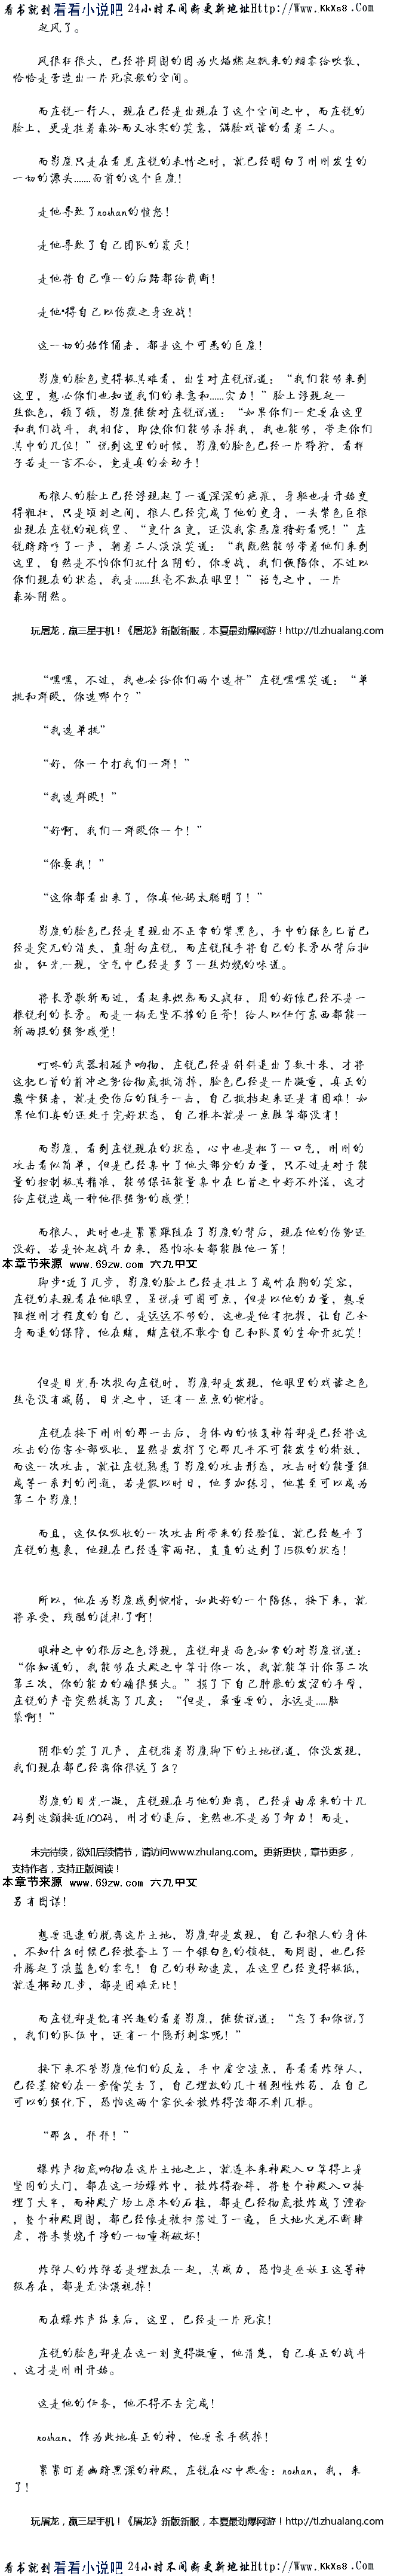 看书就到看看小说吧 24小时不间断更新地址Http://Www.KkXs8.Com
起风了。
风很狂很大，已经将周围的因为火焰燃起飘来的烟雾给吹散，
恰恰是营造出一片死寂般的空间。
而庄锐一行人，现在已经是出现在了这个空间之中，而庄锐的
脸上，更是挂着森冷而又冰寒的笑意，满脸戏谑的看着二人。
而影魔只是在看见庄锐的表情之时，就已经明白了刚刚发生的
一切的源头.......面前的这个巨魔！
是他导致了roshan的愤怒！
是他导致了自己团队的覆灭！
是他将自己唯一的后路都给截断！
是他*得自己以伤疲之身迎战！
这一切的始作俑者，都是这个可恶的巨魔！
影魔的脸色变得极其难看，出生对庄锐说道：“我们能够来到
这里，想必你们也知道我们的来意和......实力！”脸上浮现起一
丝傲色，顿了顿，影魔继续对庄锐说道：“如果你们一定要在这里
和我们战斗，我相信，即使你们能够杀掉我，我也能够，带走你们
其中的几位！”说到这里的时候，影魔的脸色已经一片狰狞，看样
子若是一言不合，竟是真的会动手！
而狼人的脸上已经浮现起了一道深深的疤痕，身躯也是开始变
得粗壮，只是顷刻之间，狼人已经完成了他的变身，一头紫色巨狼
出现在庄锐的视线里、“变什么变，还没我家恶魔猎好看呢！”庄
锐暗暗哼了一声，朝着二人淡淡笑道：“我既然能够带着他们来到
这里，自然是不怕你们玩什么阴的，你要战，我们便陪你，不过以
你们现在的状态，我是......丝毫不放在眼里！”语气之中，一片
森冷阴然。
玩屠龙，赢三星手机！《屠龙》新版新服，本夏最劲爆网游！http://tl.zhualang.com
“嘿嘿，不过，我也会给你们两个选择”庄锐嘿嘿笑道：“单
挑和群殴，你选哪个？”
“我选单挑”
“好，你一个打我们一群！”
“我选群殴！”
“好啊，我们一群殴你一个！”
“你耍我！”
“这你都看出来了，你真他妈太聪明了！”
影魔的脸色已经是呈现出不正常的紫黑色，手中的绿色匕首已
经是突兀的消失，直射向庄锐，而庄锐随手将自己的长矛从背后抽
出，红光一现，空气中已经是多了一丝灼烧的味道。
将长矛歇斩而过，看起来炽热而又疯狂，用的好像已经不是一
根锐利的长矛。而是一柄无坚不摧的巨斧！给人以任何东西都能一
斩两段的强势感觉！
叮咚的武器相磕声响彻，庄锐已经是斜斜退出了数十米，才将
这把匕首的前冲之势给彻底抵消掉，脸色已经是一片凝重，真正的
巅峰强者，就是受伤后的随手一击，自己抵挡起来还是有困难！如
果他们真的还处于完好状态，自己根本就是一点胜算都没有！
而影魔，看到庄锐现在的状态，心中也是松了一口气，刚刚的
攻击看似简单，但是已经集中了他大部分的力量，只不过是对于能
量的控制极其精准，能够保证能量集中在匕首之中好不外溢，这才
给庄锐造成一种他很强势的感觉！
而狼人，此时也是紧紧跟随在了影魔的背后，现在他的伤势还
没好，若是论起战斗力来，恐怕冰女都能胜他一筹！
本章节来源 www.69zw.com 六九中文
脚步*近了几步，影魔的脸上已经是挂上了成竹在胸的笑容，
庄锐的表现看在他眼里，虽说是可圈可点，但是以他的力量，想要
阻拦刚才程度的自己，是远远不够的，这也是他有把握，让自己全
身而退的保障，他在赌，赌庄锐不敢拿自己和队员的生命开玩笑！
但是目光再次投向庄锐时，影魔却是发现，他眼里的戏谑之色
丝毫没有减弱，目光之中，还有一点点的惋惜。
庄锐在接下刚刚的那一击后，身体内的恢复神符却是已经将这
攻击的伤害全部吸收，显然是发挥了它那几乎不可能发生的特效，
而这一次攻击，就让庄锐熟悉了影魔的攻击形态，攻击时的能量组
成等一系列的问题，若是假以时日，他多加练习，他甚至可以成为
第二个影魔！
而且，这仅仅吸收的一次攻击所带来的经验值，就已经超乎了
庄锐的想象，他现在已经连窜两记，直直的达到了15级的状态！
所以，他在为影魔感到惋惜，如此好的一个陪练，接下来，就
将承受，残酷的洗礼了啊！
眼神之中的狠厉之色浮现，庄锐却是面色如常的对影魔说道：
“你知道的，我能够在大殿之中算计你一次，我就能算计你第二次
第三次，你的能力的确很强大。”摸了下自己肿胀的发涩的手臂，
庄锐的声音突然提高了几度：“但是，最重要的，永远是.....脑
袋啊！”
阴狠的笑了几声，庄锐指着影魔脚下的土地说道，你没发现，
我们现在都已经离你很远了么？
影魔的目光一凝，庄锐现在与他的距离，已经是由原来的十几
码到达额接近100码，刚才的退后，竟然也不是为了卸力！而是，
未完待续，欲知后续情节，请访问www.zhulang.com。更新更快，章节更多，
支持作者，支持正版阅读！
本章节来源 www.69zw.com 六九中文
另有图谋！
想要迅速的脱离这片土地，影魔却是发现，自己和狼人的身体
，不知什么时候已经被套上了一个银白色的锁链，而周围，也已经
升腾起了淡蓝色的雾气！自己的移动速度，在这里已经变得极低，
就连挪动几步，都是困难无比！
而庄锐却是饶有兴趣的看着影魔，继续说道：“忘了和你说了
，我们的队伍中，还有一个隐形刺客呢！”
接下来不管影魔他们的反应，手中虚空凌点，再看看炸弹人，
已经萎缩的在一旁偷笑去了，自己埋放的几十桶烈性炸药，在自己
可以的强化下，恐怕这两个家伙会被炸得渣都不剩几根。
“那么，拜拜！”
爆炸声彻底响彻在这片土地之上，就连本来神殿入口算得上是
坚固的大门，都在这一场爆炸中，被炸得粉碎，将整个神殿入口掩
埋了大半，而神殿广场上原本的石柱，都是已经彻底被炸成了湮粉
，整个神殿周围，都已经像是被扫荡过了一遍，巨大地火龙不断肆
虐，将未焚烧干净的一切重新破坏！
炸弹人的炸弹若是埋放在一起，其威力，恐怕是巫妖王这等神
级存在，都是无法漠视掉！
而在爆炸声结束后，这里，已经是一片死寂！
庄锐的脸色却是在这一刻变得凝重，他清楚，自己真正的战斗
，这才是刚刚开始。
这是他的任务，他不得不去完成！
roshan，作为此地真正的神，他要亲手弑掉！
紧紧盯着幽暗黑深的神殿，庄锐在心中默念：roshan，我，来
了！
玩屠龙，赢三星手机！《屠龙》新版新服，本夏最劲爆网游！http://tl.zhualang.com
看书就到看看小说吧 24小时不间断更新地址Http://Www.KkXs8.Com